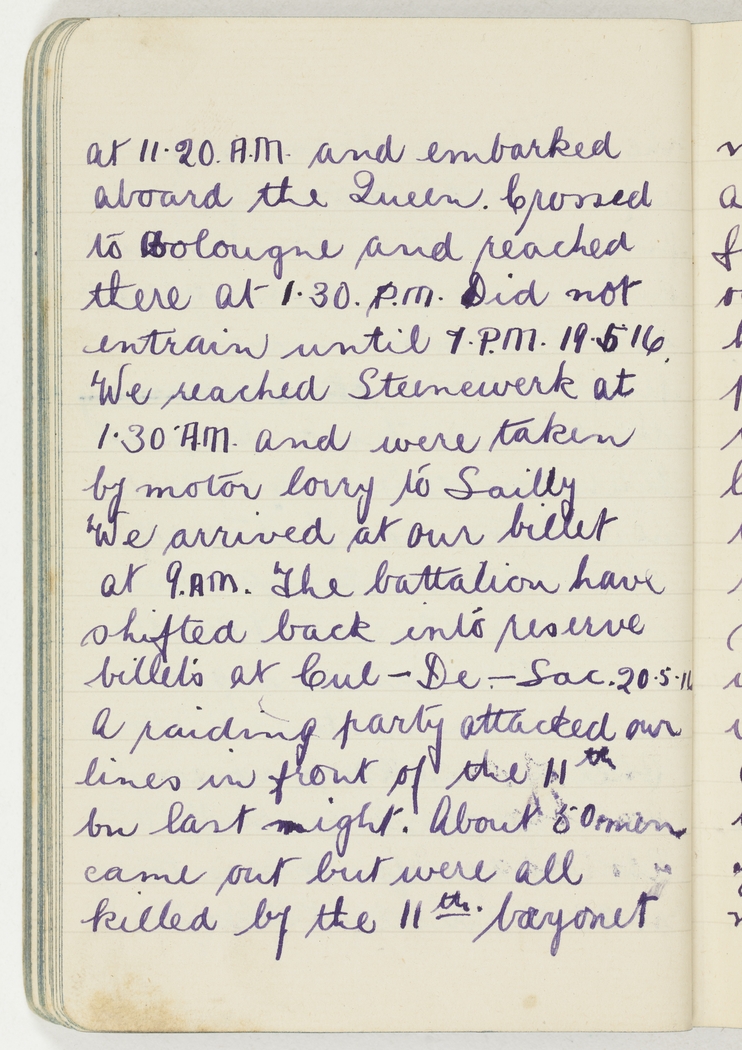 at 11.20. A.M. and embarked
aboard the Queen. Crossed
to Bolougne and reached
there at 1.30. P.M. Did not
entrain until 7.P.M. 19.5 16.
We reached Steenewerk at
1.30 A.M. and were taken
by motor lorry to Sailly
We arrived at our billet
at 9.AM. The battalion have
shifted back into reserve
billets at Cul-De-Sac. 20.5.16
A raiding party attacked our
lines in front of the 11th
bn last night. About 50 men
came out but were all
killed by the 11th. bayonet